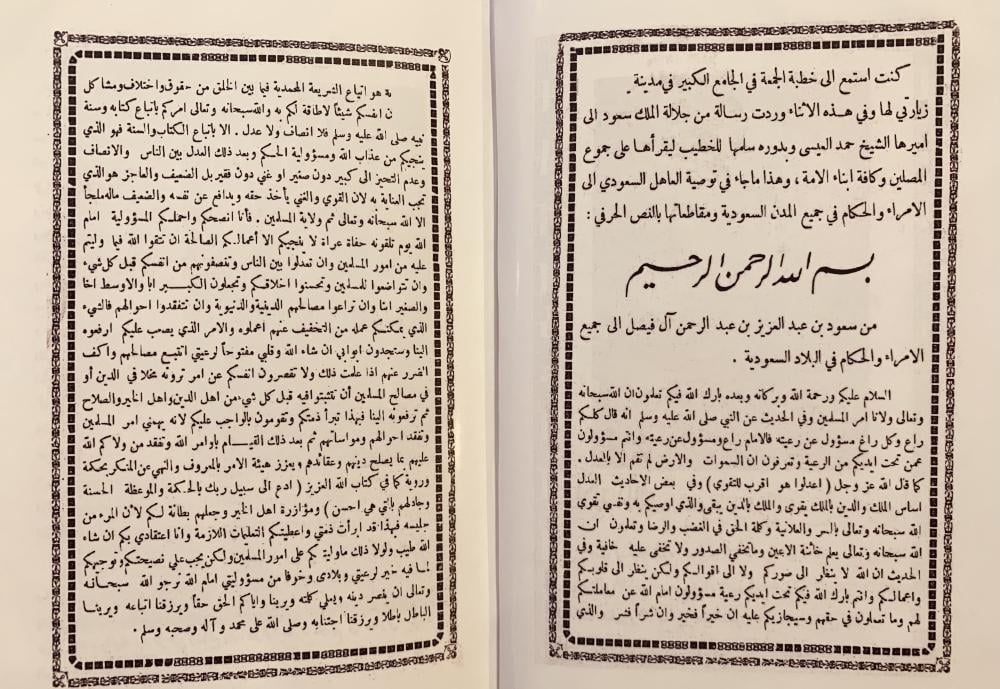 كنت استمع الى خطبة الجمعة في الجامع الكبير في مدينة
زيارتي لها وفي هذه الاثناء وردت رسالة من جلالة الملك سعود الى
أميرها الشيخ حمد العيسى وبدوره سلمها للخطيب ليقرأها على جموع
المصلين وكافة ابناء الامة ، وهذا ماجاء في توصية العاهل السعودي الى
الامراء والحكام في جميع المدن السعودية ومقاطعاتها بالنص الحرفي :
بسم الله الرحمن الرحيم
من سعود بن عبد العزيز بن عبد الرحمن آل فيصل الى جميع
الامراء والحكام في البلاد السعودية .
السلام عليكم ورحمة الله وبركاته وبعده بارك الله فيكم تعلمون ان الله سبحانه
وتعالى ولانا امر المسلمين وفي الحديث عن النبي صلى الله عليه وسلم انه قال كلكم
راع وكل راغ مسؤول عن رعيته فالامام راع ومسؤول عن رعيته وانتم مسؤولون
عمن تحت ايديكم من الرعية وتعرفون ان السموات والارض لم تقم الا بالعدل .
كما قال الله عز وجل ( اعدلوا هو اقرب للتقوي ) وفي بعض الاحاديث العدل
اساس الملك والدين بالملك يقوى والملك بالدين يبقى والذي اوصيكم به ونفسي تقوي
الله سبحانه وتعالى بالسر والعلانية وكلمة الحق في الغضب والرضا وتعلمون ان
الله سبحانه وتعالى يعلم خائنة الاعين وماتخفي الصدور ولا تخفى عليه خافية وفي
الحديث ان الله لا ينظر الى صوركم ولا الى اقوالكم ولكن ينظر الى قلوبكم
واعمالكم وانتم بارك الله فيكم تحت ايديكم رعية مسؤولون امام الله عن معاملتكم
لهم وما تعملون في حقهم وسيجازيكم عليه ان خيراً فخير وان شراً فشر والذي
هو اتباع الشريعة المحمدية فيما بين الخلق من حقوق واختلاف ومشاكل
انفسكم شيئاً لاطاقة لكم به والله سبحانه وتعالى امركم باتباع كتابه وسنة
نبيه صلى الله عليه وسلم فلا انصاف ولا عدل . الا باتباع الكتاب والسنة فهو الذي
ينجيكم من عذاب الله ومسؤولية الحكم وبعد ذلك العدل بين الناس والانصاف
وعدم التحيز الى كبير دون صغير او غني دون فقير بل الضعيف والعاجز هو الذي
تجب العناية به لان القوي والغني يأخذ حقه ويدافع عن نفسه والضعيف ماله ملجأ
الا الله سبحانه وتعالى ثم ولاية المسلمين . فأنا انصحكم واحملكم المسؤولية امام
الله يوم تلقونه حفاة عراة لا ينجيكم الا أعمالكم الصالحة ان تتقوا الله فيما وليتم
عليه من امور المسلمين وان تعدلوا بين الناس وتنصفونهم من انفسكم قبل كل شيء
وان تتواضعوا للمسلمين وتحسنوا اخلاقكم وتجعلون الكبير ابا والاوسط اخا
والصغير ابنا وان تراعوا مصالحهم الدينية والدنيوية وان تتفقدوا احوالهم فالشيء
الذي يمكنكم عمله من التخفيف عنهم اعملوه والامر الذي يصعب عليكم ارفعوه
الينا وستجدون ابوابي ان شاء الله وقلبي مفتوحاً لرعيتي اتتبع مصالحهم واكف
الضرر عنهم اذا علمت ذلك ولا تقصرون انفسكم عن امر ترونه مخلا في الدين أو
في مصالح المسلمين أن تتثبتوا فيه قبل كل شي من اهل الدين واهل الخير والصلاح
ثم ترفعونه الينا فبهذا تبرأ ذمتكم وتقومون بالواجب عليكم لانه يهمني امر المسلمين
وتفقد احوالهم ومواساتهم ثم بعد ذلك القيام باوامر الله وتفقد من ولاكم الله
عليهم بما يصلح دينهم وعقائدهم ويعزز هيئة الامر بالمعروف والنهي عن المنكر بحكمة
وروية كما في كتاب الله العزيز ( ادع الى سبيل ربك بالحكمة والموعظة الحسنة
وجادلهم بالتي هي احسن ) ومؤازرة اهل الخير وجعلهم بطانة لكم لأن المرء من
جليسه فبهذا قد ابرأت ذمتي واعطيتكم التعليمات اللازمة وانا اعتقادي بكم ان شاء
الله طيب ولولا ذلك ماوليتكم على امور المسلمين ولكن يجب علي نصيحتكم وتوجيهكم
لما فيه خير لرعيتي وبلادى وخوفا من مسؤوليتي امام الله نرجو الله سبحانه
وتعالى ان ينصر دينه ويعلي كلمته ويرينا واياكم الحق حقاً ويرزقنا اتباعه ويرينا
الباطل باطلا ويرزقنا اجتنابه وصلى الله على محمد وآله وصحبه وسلم .